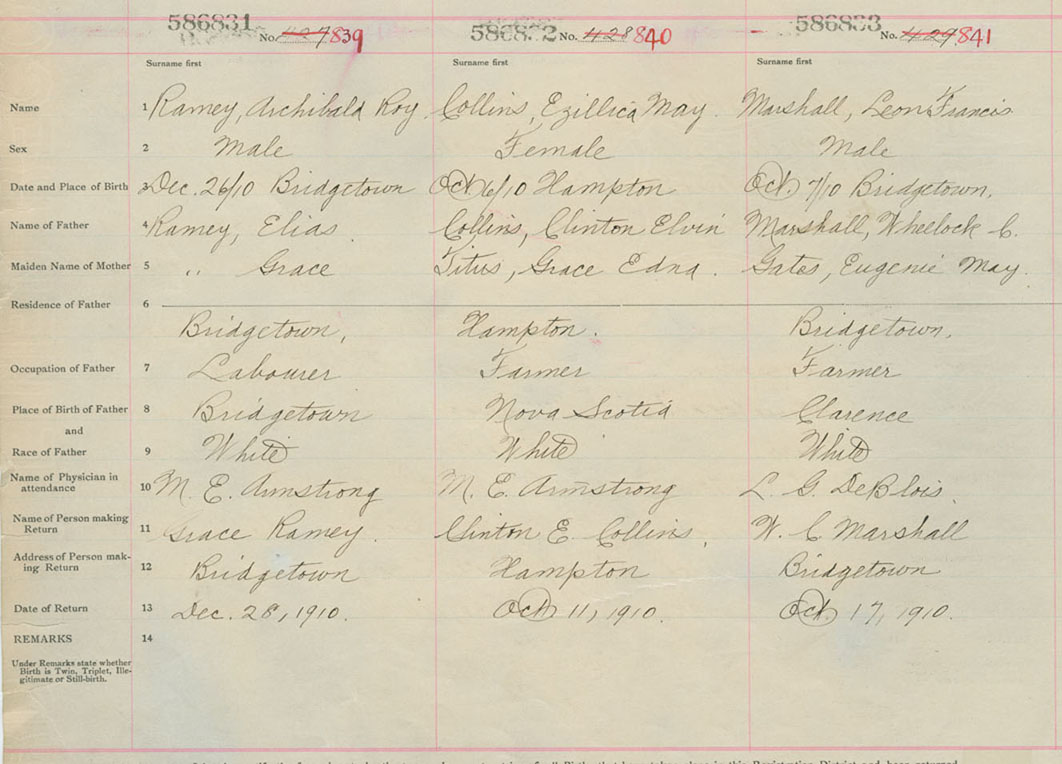 586831 No. 427 839 586832 No. 428 840 586833 No. 429 841
Surname first Surname first Surname first
Name 1 Ramey, Archibald Roy Collins, Ezillica May. Marshall, Leon Francis
Sex 2 Male Female Male
Date and Place of Birth 3 Dec. 26/10 Bridgetown Oct 6/10 Hampton Oct. 7/10 Bridgetown.
Name of Father 4 Ramey, Elias. Collins, Clinton Elvin Marshall, Wheelock C.
Maiden Name of Mother 5 " Grace Titus, Grace Edna. Gates, Eugenie May.
Residence of Father 6
Bridgetown, Hampton. Bridgetown,
Occupation of Father 7 Labourer Farmer Farmer
Place of Birth of Father 8 Bridgetown Nova Scotia Clarence
and
Race of Father 9 White White White
Name of Physician in
attendance 10 M. E. Armstrong M. E. Armstrong L. G. DeBlois.
Name of Person making
Return 11 Grace Ramey. Clinton E. Collins. W. C Marshall
Address of Person mak-
ing Return 12 Bridgetown Hampton Bridgetown
Date of Return 13 Dec. 28, 1910. Oct 11, 1910. Oct. 17, 1910.
REMARKS 14
Under Remarks state whether
Birth is Twin, Triplet, Ille-
gitimate or Still-birth.